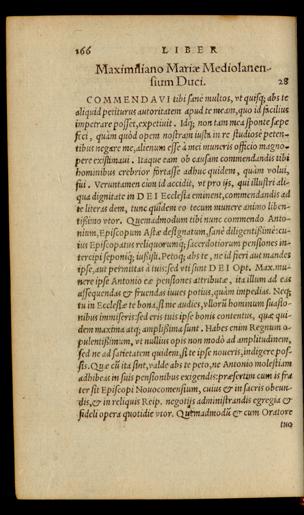 166 LIBER
Maximiliano Mariæ Mediolanen-
sium Duci. 28
COMMENDAVI tibi sanè multos, vt quisq; abs te
aliquid petiturus autoritatem apud te meam, quo id facilius
impetrare posset, expetiuit. Idq; non tam mea sponte sæpe
feci, quàm quòd opem nostram iustis in re studiosè peten-
tibus negare me, alienum esse à mei muneris officio magno-
pere existimaui. Itaque eam ob causam commendandis tibi
hominibus crebrior fortasse adhuc quidem, quàm volui,
fui. Veruntamen cùm id accidit, vt pro ijs, qui illustri ali-
qua dignitate in DEI Ecclesia eminent, commendandis ad
te literas dem, tunc quidem eo tecum munere animo liben-
tissimo vtor. Quemadmodum tibi nunc commendo Anto-
nium, Episcopum Astæ designatum, sanè diligentissimè: cu-
ius Episcopatus reliquorumq; sacerdotiorum pensiones in-
tercipi seponiq; iussisti. Peto q; abs te, ne id fieri aut mandes
ipse, aut permittas à tuis: sed vti sint DEI Opt. Max. mu-
nere ipse Antonio eæ pensiones attributæ, ita illum ad eas
assequendas & fruendas iuues potius, quàm impedias. Neq;
tu in Ecclesiæ te bona, si me audies, vllorū hominum suasio-
nibus immiseris: sed eris tuis ipse bonis contentus, quæ qui-
dem maxima atq; amplissima sunt. Habes enim Regnum o-
pulentissimum, vt nullius opis non modò ad amplitudinem,
sed ne ad satietatem quidem, si te ipse noueris, indigere pos-
sis. Quæ cū ita sint, valde abs te peto, ne Antonio molestiam
adhibeat in suis pensionibus exigendis: præsertim cum is fra
ter sit Episcopi Nouocomensium, cuius & in sacris obeun-
dis, & in reliquis Reip. negotijs administrandis egregia &
fideli opera quotidie vtor. Quemadmodū & cum Oratore
tuo